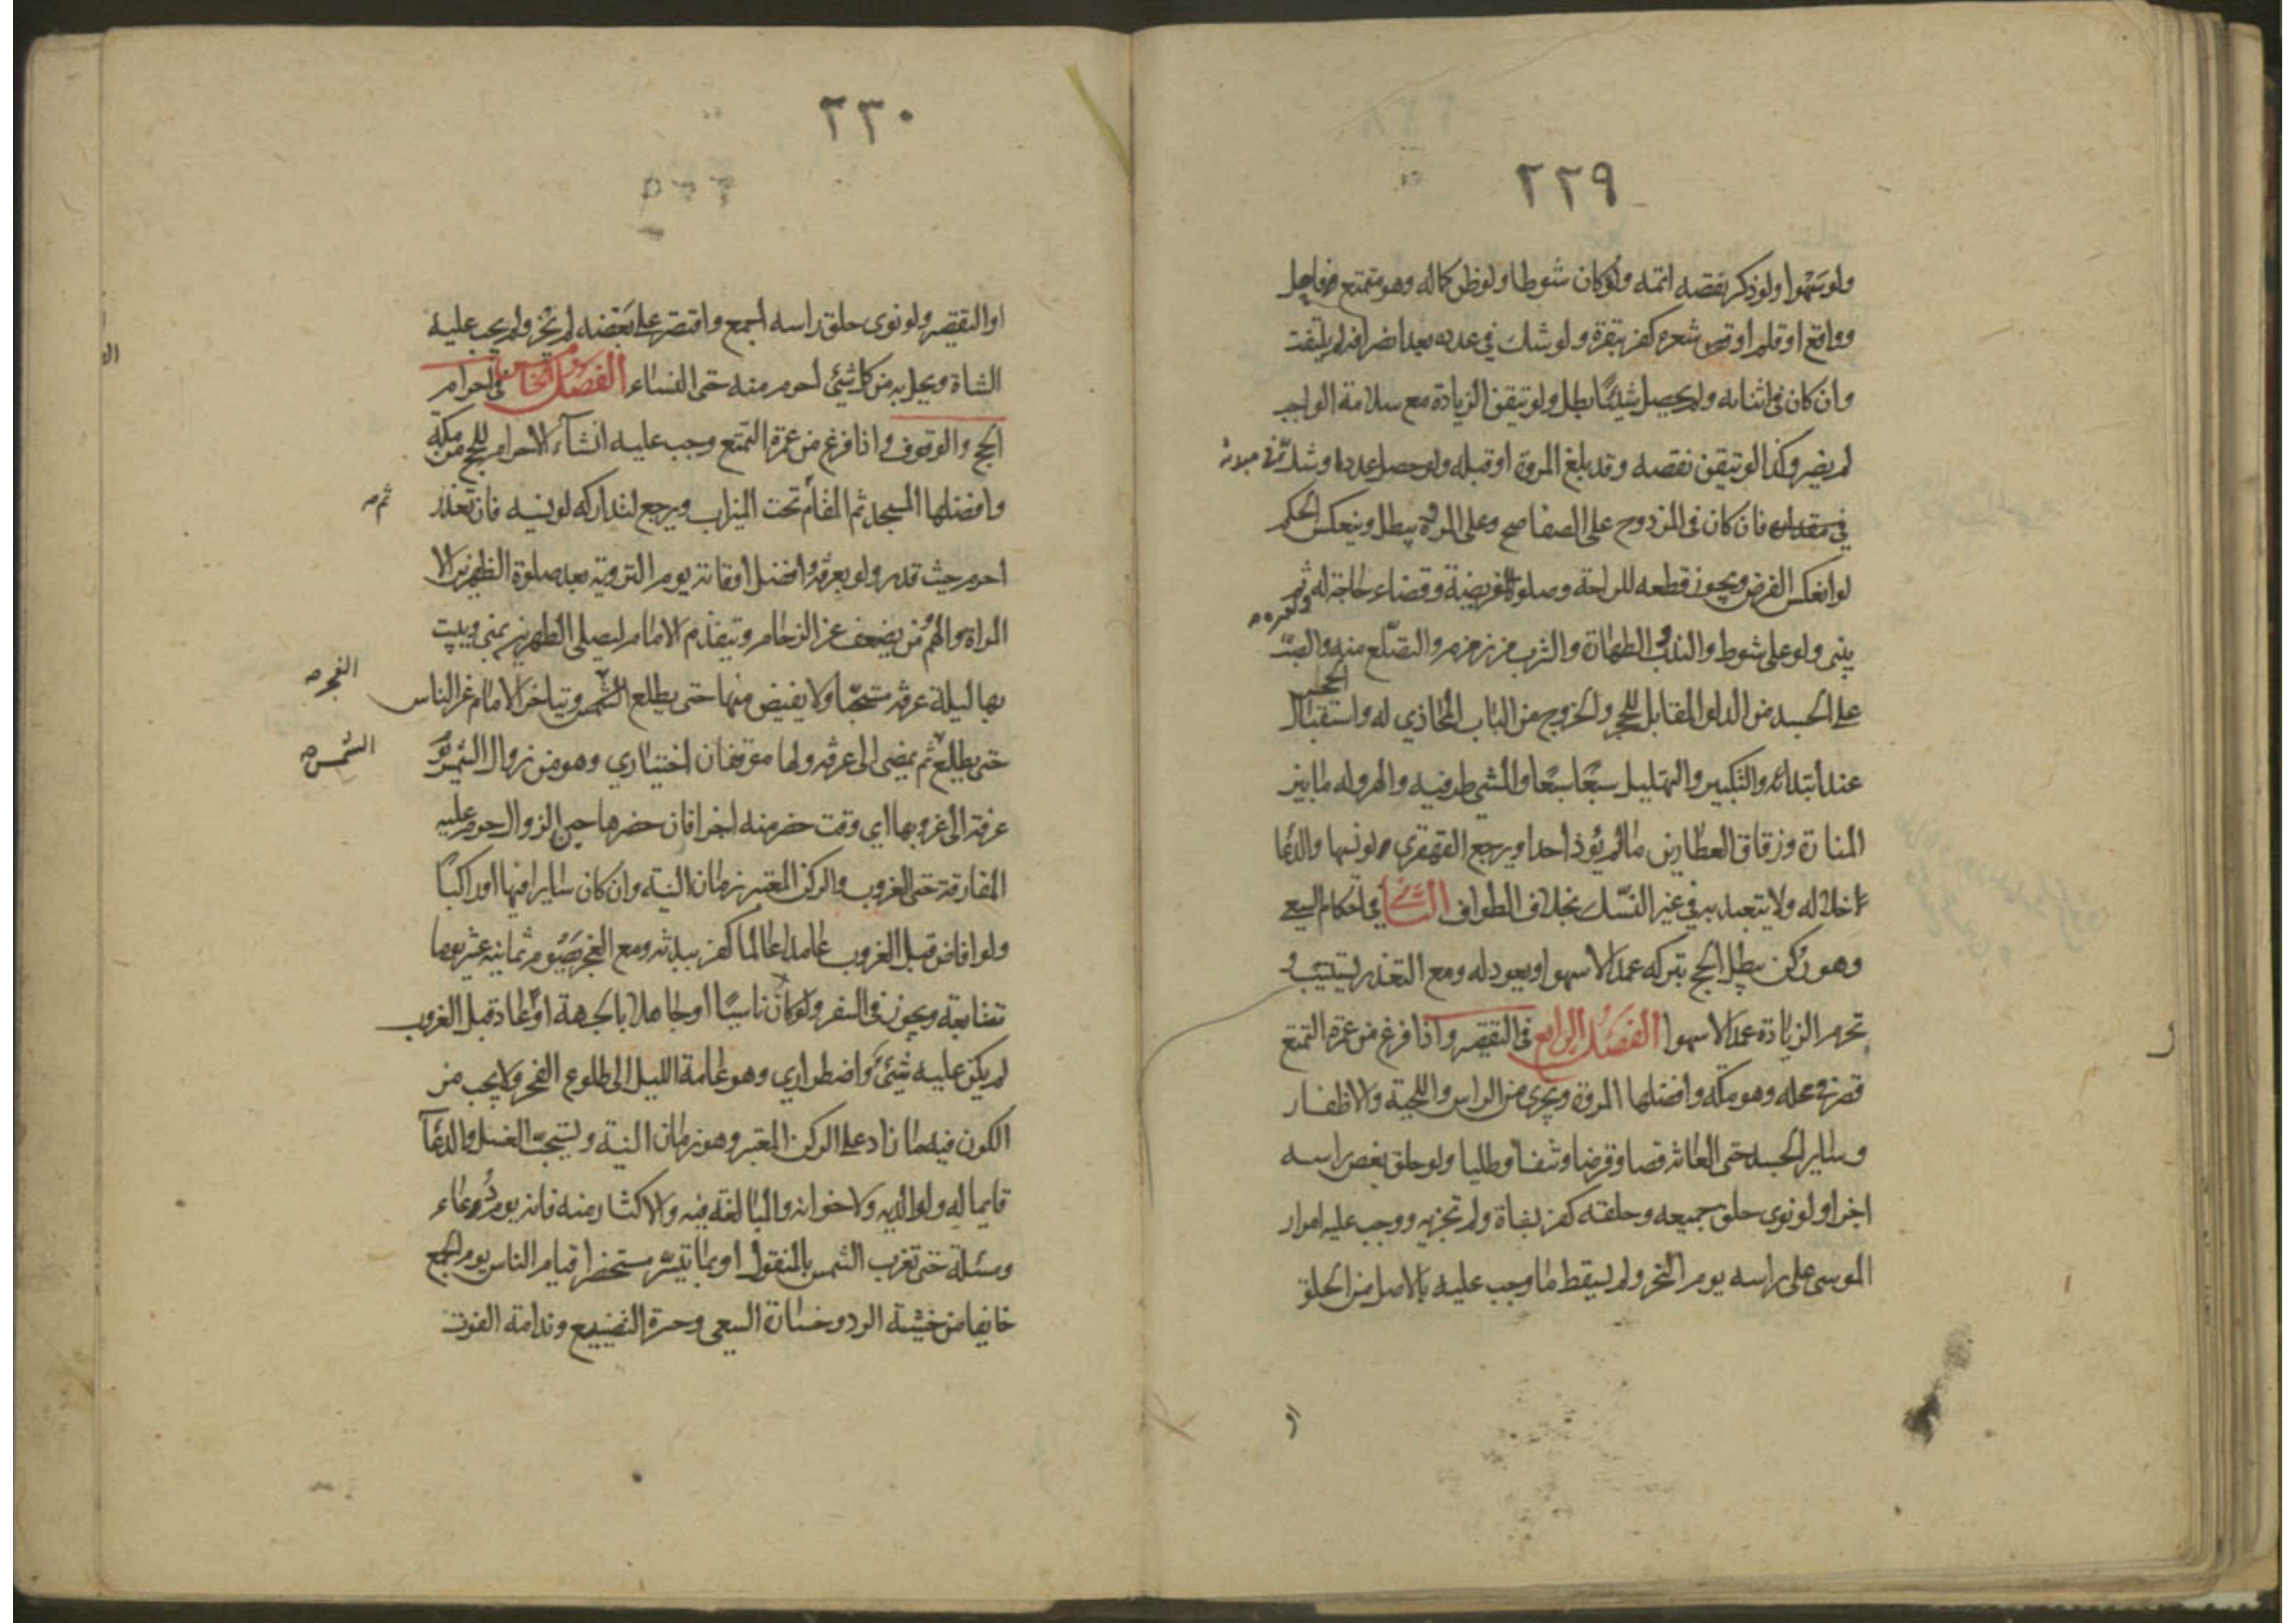 ٢٢٩
ولو سهوا ولو ذكر نقصه اتمه ولو كان شوطا ولو ظن كماله وهو متمتع فاحل
وواقع او قلم او قص شعره كفر ببقرة ولو شك في عدده بعد انصرافه لم يلتفت
وان كان في اثنائه ولم يحصل شيئا بطل ولو تيقن الزيادة مع سلامة الواجب
لم يضر وكذا لو تيقن نقصه وقد بلغ المروة او قبله ولو حصل عددا وشك في مبدئه
فان كان في المزدوج على الصفا صح وعلى المروة يبطل وينعكس الحكم
لو انعكس الفرض ويجوز قطعه للراحة وصلوة الفريضة وقضاء حاجة له ثم
يبني ولو على شوط والندب الطهارة والشرب من زمزم والتضلع منه والصب
على الجسد من الدلو المقابل للحجر والخروج من الباب المحاذي له واستقبال الحجر
عند ابتدائه والتكبير والتهليل سبعا سبعا والمشي طرفيه والهرولة ما بين
المنارة وزقاق العطارين ما لم يؤذ احدا ويرجع القهقرى لو نسيها والدعا
خلاله ولا يتعبد به في غير النسك بخلاف الطواف الثاني في احكام السعي
وهو ركن يبطل الحج بتركه عمدا لا سهوا ويعود له ومع التعذر يستنيب و
تحرم الزيادة عمدا لا سهوا الفصل الرابع في التقصير واذا فرغ من عمرة التمتع
قصر في محله وهو مكة وافضلها المروة ويجزي من الراس واللحية والاظفار
وساير الجسد حتى العانة قصا وقرضا ونتفا وطليا ولو حلق بعض راسه
اجزا ولو نوى حلق جميعه وحلقه كفر بشاة ولم تجزيه ووجب عليه امرار
الموسى على راسه يوم النحر ولم يسقط ما وجب عليه بالاصل من الحلق
او
٢٣٠
او التقصير ولو نوى حلق راسه اجمع واقتصر على بعضه لم يجز ولم يجب عليه
الشاة ويحل به من كل شيئ احرم منه حتى النساء الفصل الخامس في احرام
الحج والوقوف واذا فرغ من عمرة التمتع وجب عليه انشاء الاحرام للحج من مكة
وافضلها المسجد ثم المقام تحت الميزاب ويرجع لتداركه لو نسيه فان تعذر
ثم
احرم حيث قدر ولو بعرفة وافضل اوقاته يوم التروية بعد صلوة الظهرين الا
المراة والهم ومن يضعف عن الزحام ويتقدم الامام ليصلي الظهرين بمنى ويبيت
بها ليلة عرفة مستحبا ولا يفيض منها حتى يطلع الشمس ويتاخر الامام عن الناس
الفجر
حتى يطلع ثم يمضي الى عرفة ولها موقفان اختياري وهو من زوال الشمس يوم
الشمس
عرفة الى غروبها اي وقت حضر منه اجزا فان حضرها حين الزوال حرم عليه
المفارقة حتى الغروب والركن المعتبر زمان النية وان كان سايرا فيها او راكبا
ولو افاض قبل الغروب عامدا عالما كفر ببدنة ومع العجز يصوم ثمانية عشر يوما
متتابعة ويجوز في السفر ولو كان ناسيا او جاهلا بالجهة او عاد قبل الغروب
لم يكن عليه شيئ واضطراري وهو عامة الليل الى طلوع الفجر ولا يجب من
الكون فيهما ما زاد على الركن المعتبر وهو زمان النية ويستحب الغسل والدعا
قايما له ولوالديه ولاخوانه والمبالغة فيه والاكثار منه فانه يوم دعاء
ومسئلة حتى تغرب الشمس بالمنقول او بما تيسر مستحضرا قيام الناس يوم الجمع
خايفا من خشية الرد وخسارة السعي وحسرة التضييع وندامة الفوت